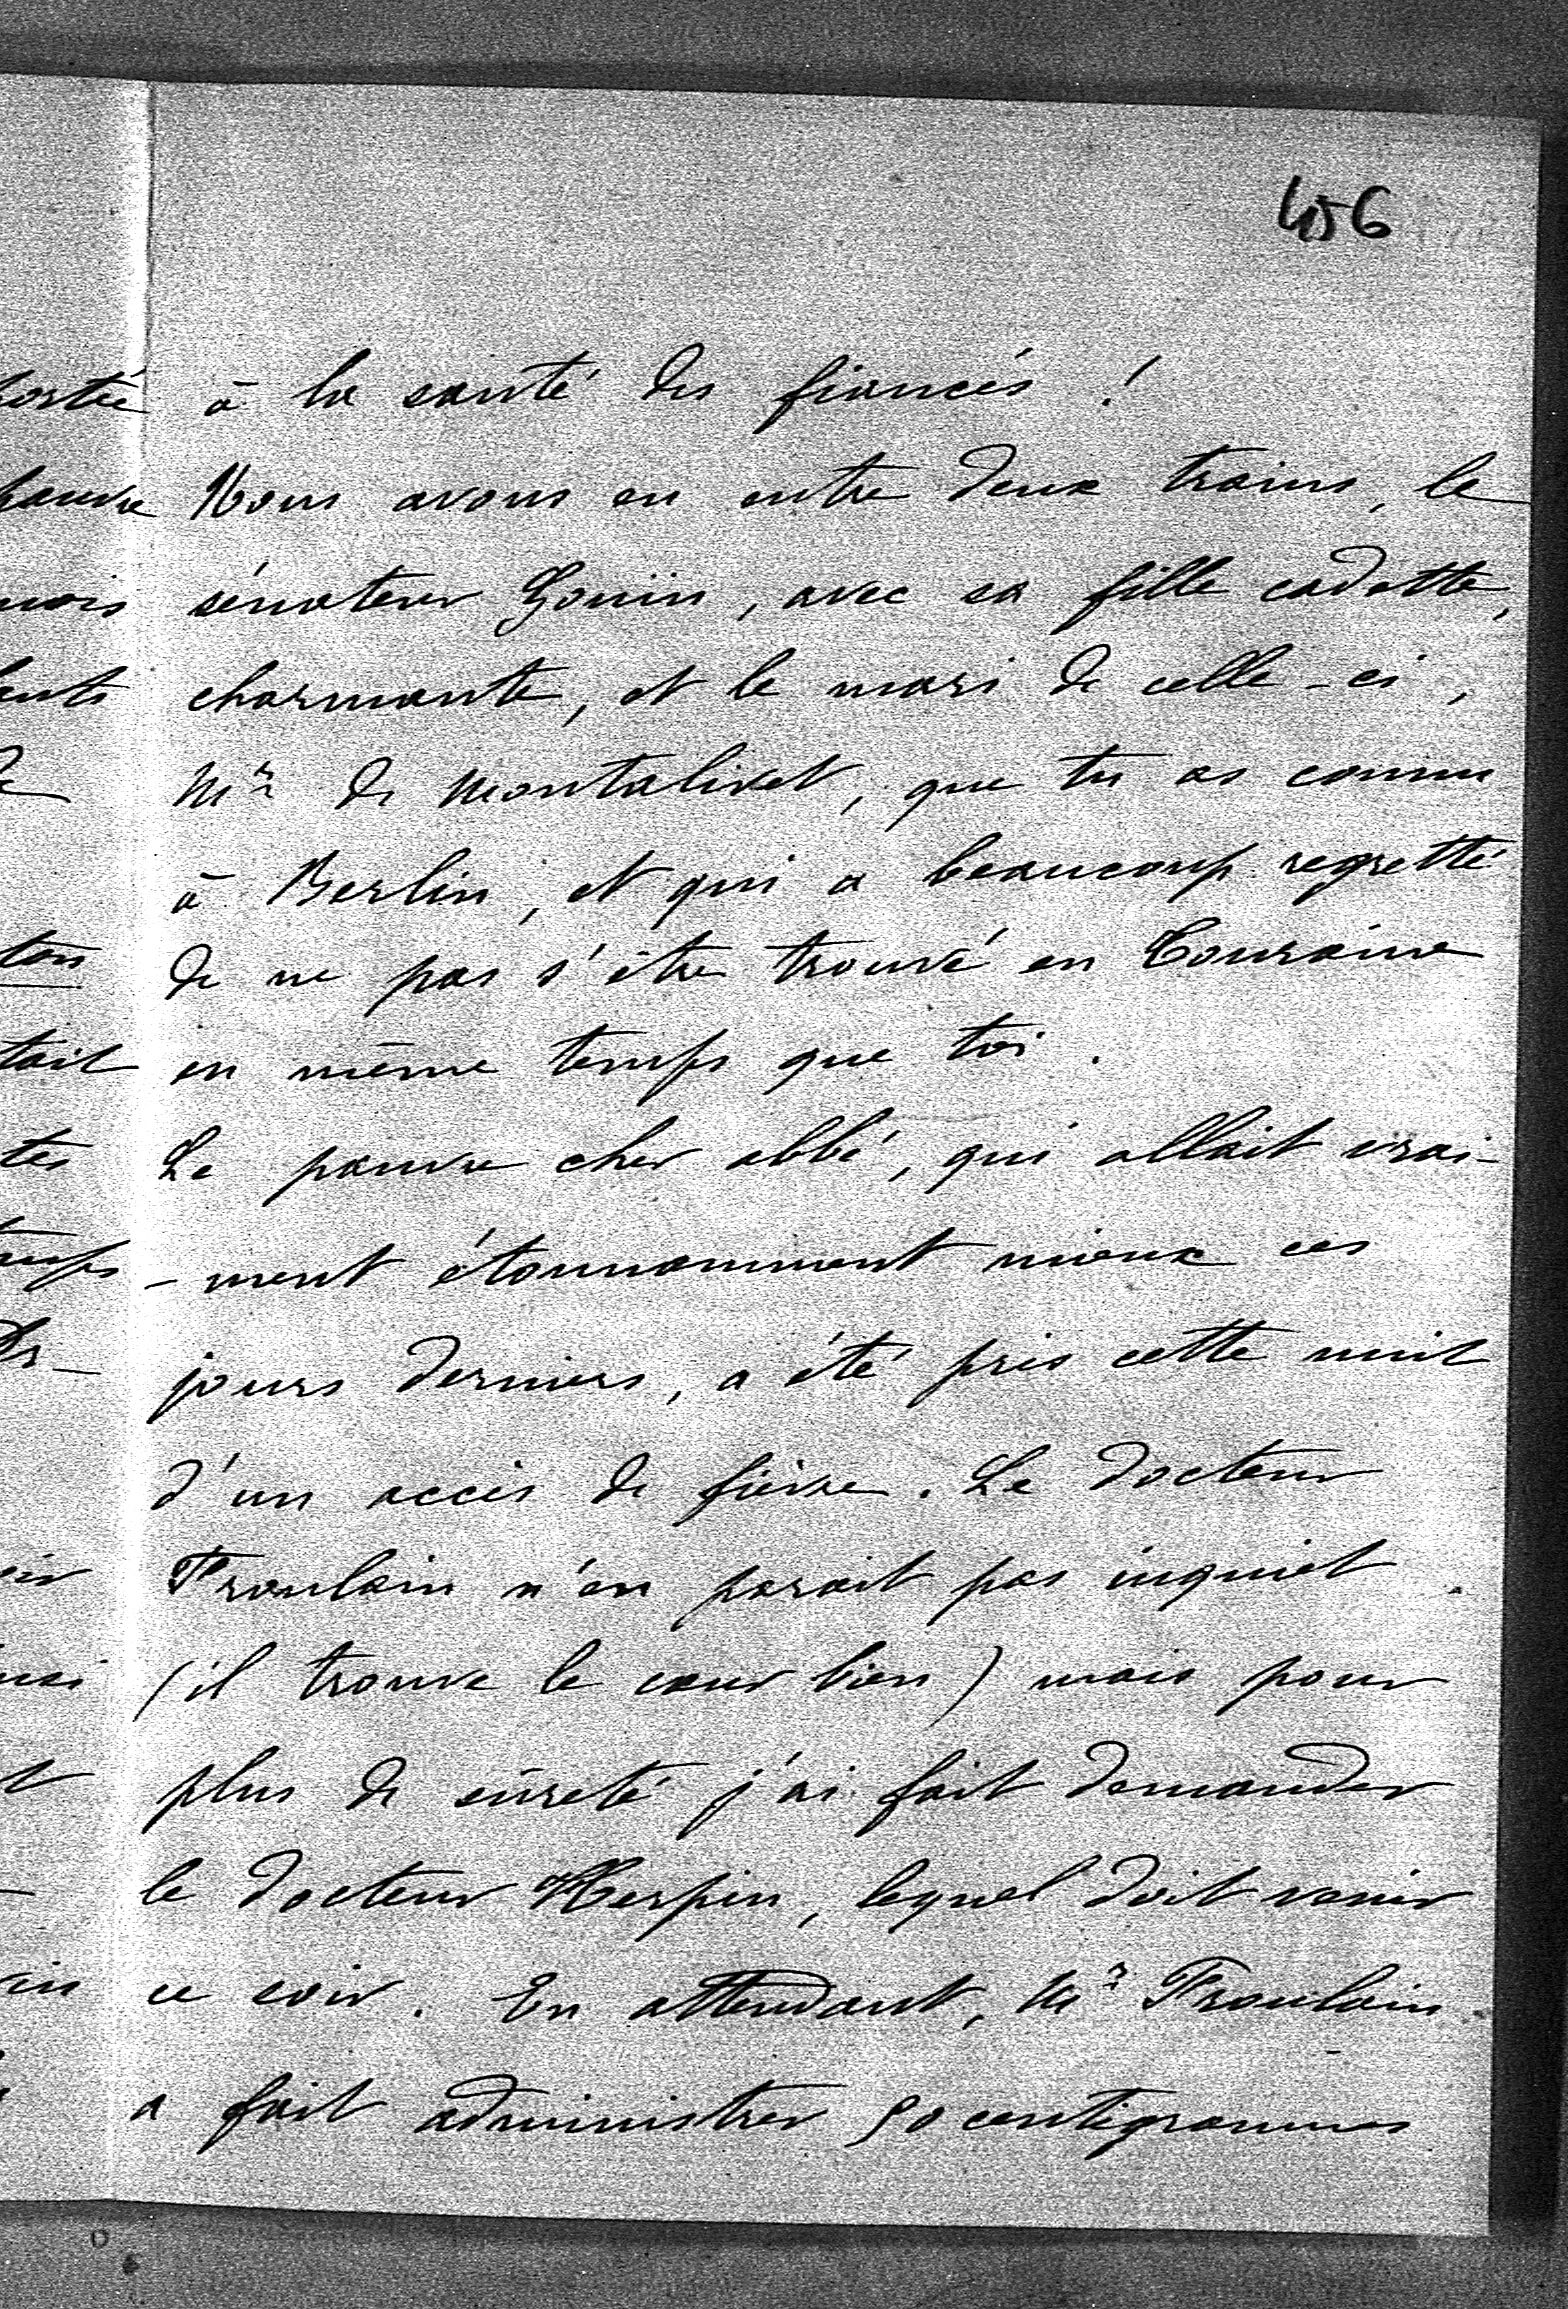 456
à la santé des fiancés !
Nous avons eu entre deux trains, le
sénateur Goüin, avec sa fille cadette,
charmante, et le mari de celle-ci,
Mr de Montalivet, que tu as connu
à Berlin, et qui a beaucoup regretté
de ne pas s'être trouvé en Touraine
en même temps que toi.
Le pauvre cher abbé, qui allait vrai-
-ment étonnamment mieux ces
jours derniers, a été pris cette nuit
d'un accès de fièvre. Le docteur
Froulain n'en parait pas inquiet.
(il trouve le cœur bien) mais pour
plus de sûreté j'ai fait demander
le docteur Herpin, lequel doit venir
ce soir. En attendant, Mr Froulain
a fait administrer 50 centigrammes